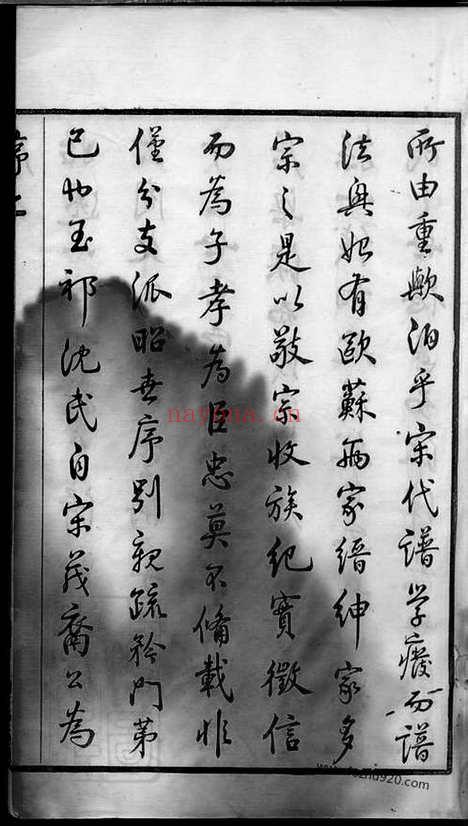 所由重歟洎乎宋代譜學癈而譜
法興始有歐蘇兩家縉紳家多
宗之是以敬宗收族紀實徵信
而為子孝為臣忠莫不備載非
僅分支派昭世序別親疏矜門第
已也玉祁沈氏自宋茂齋公為
序二
nayona.cn